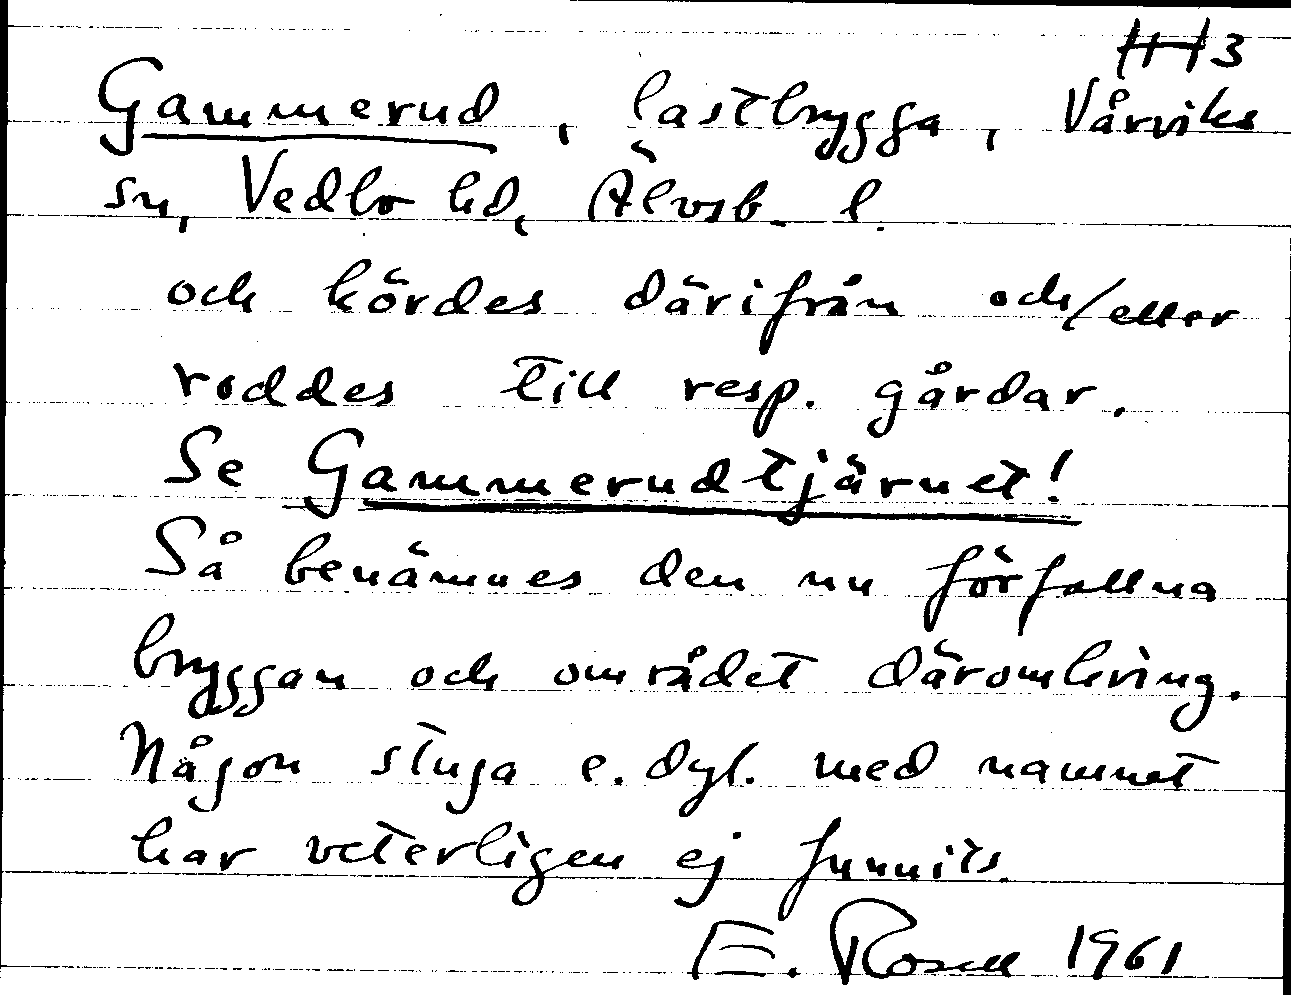 3
Gammerud, lastbrygga, Vårviks
sn, Vedbo hd, Älvsb. l.
och kördes därifrån och/eller
roddes till resp. gårdar.
Se Gammerudtjärnet!
Så benämnes den nu förfallna
bryggan och området däromkring.
Någon stuga e. dyl. med namnet
har veterligen ej funnits.
E. Rosell 1961